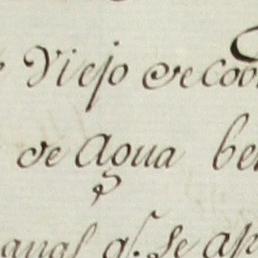 Viejo de co
de Agua be
q.l se ap